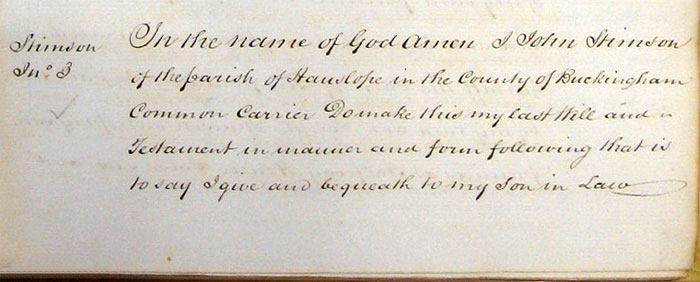 Stimson
Jnº 3
In the name of God Amen I John Stimson
of the parish of Hanslope in the County of Buckingham
Common Carrier Do make this my last Will and
Testament in manner and form following that is
to say I give and bequeath to my Son in Law